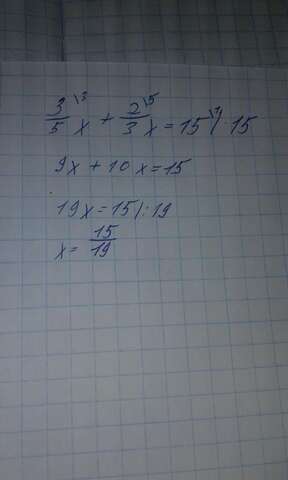 3/5 \3 x + 2/3 \5 x = 15 \1 / · 15
9x + 10x = 15
19x = 15 / : 19
x = 15/19